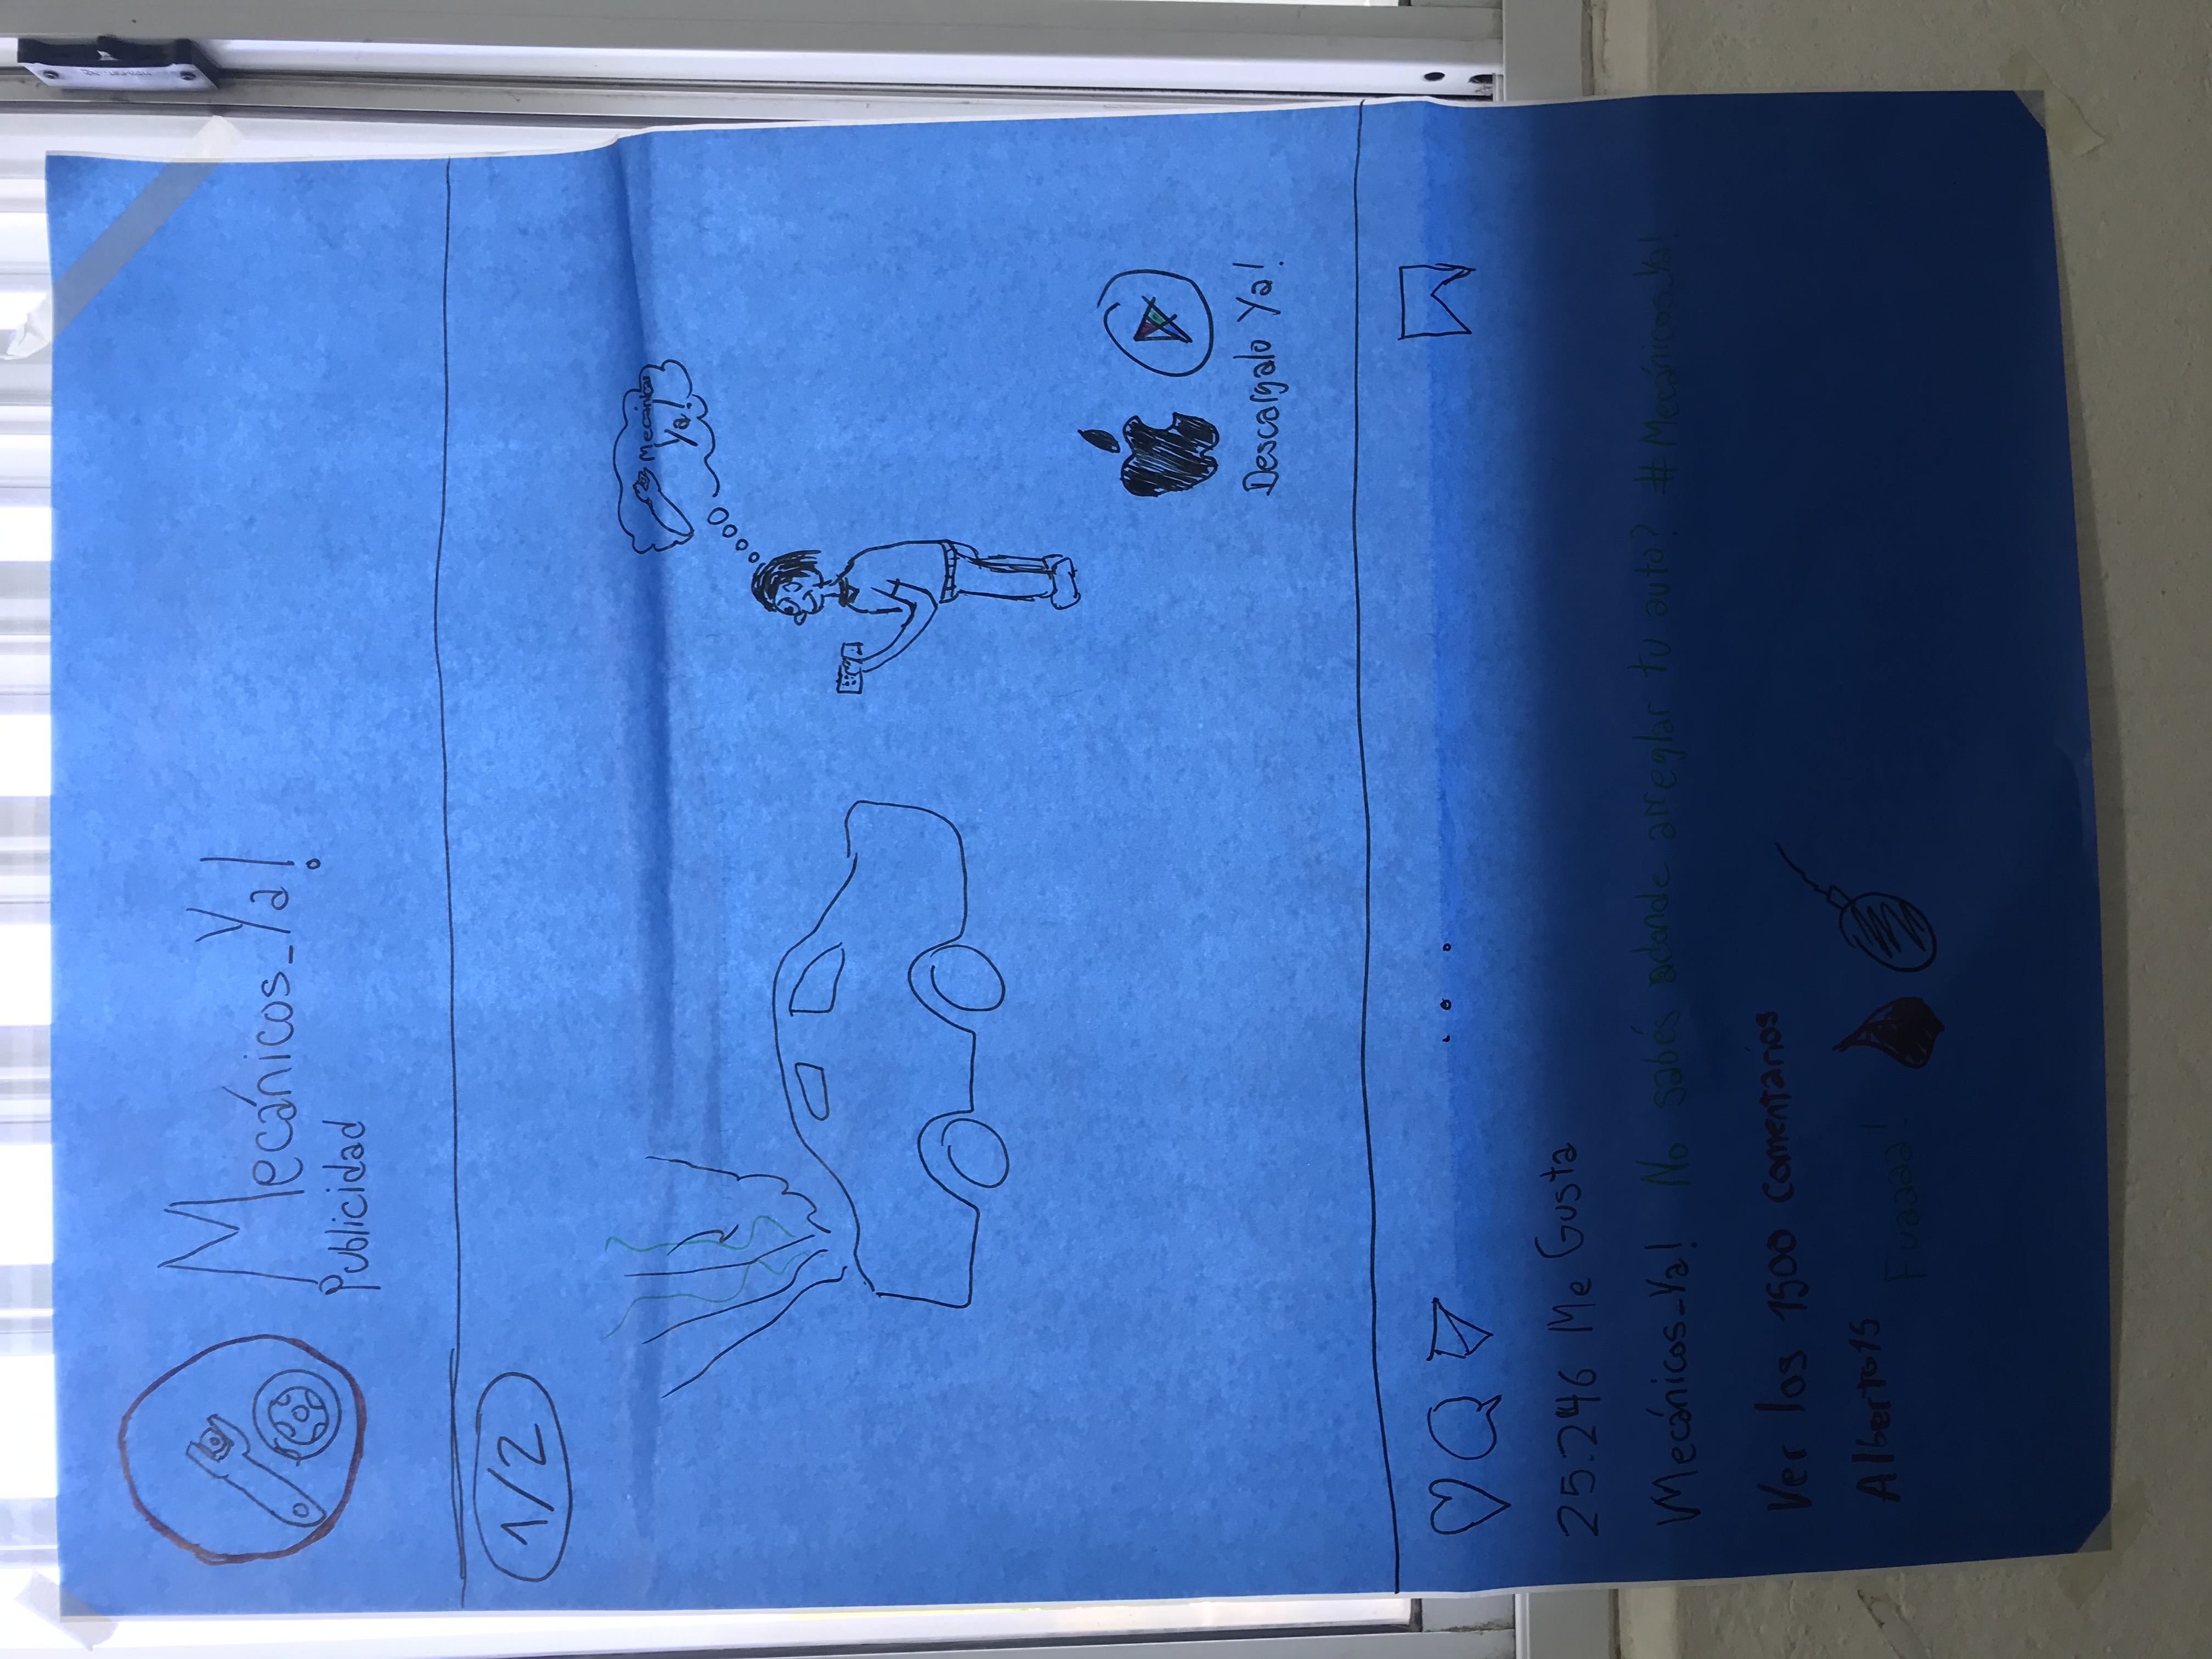 Mecánicos_Ya!
Publicidad
1/2
Mecánicos
Ya!
Descargalo Ya!
25.246 Me Gusta
Mecánicos_Ya! No sabés adonde arreglar tu auto? #Mecánicos_Ya!
Ver los 1500 comentarios
Alberto15 Fuaaaa!